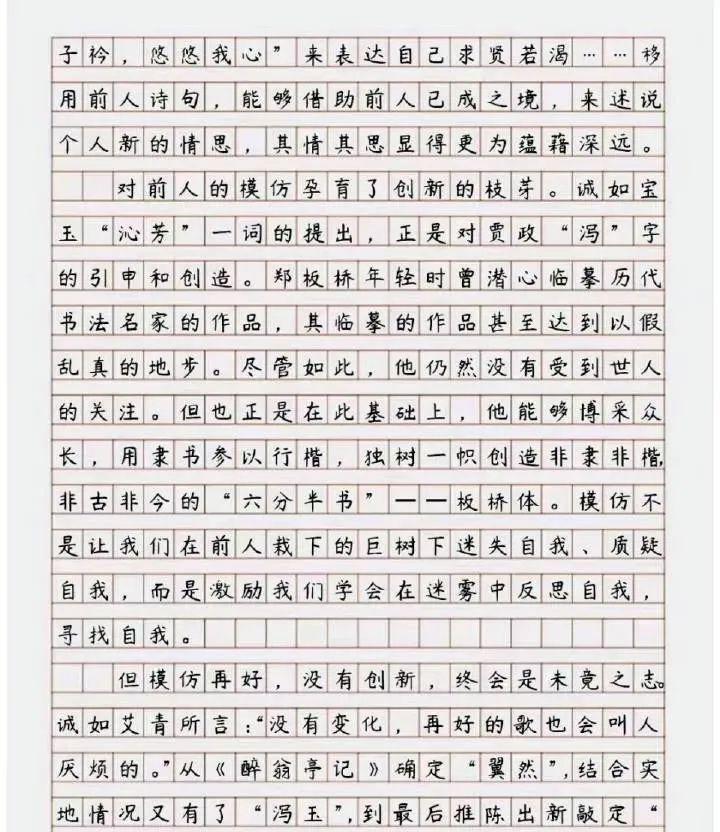 子衿，悠悠我心”来表达自己求贤若渴……移
用前人诗句，能够借助前人已成之境，来述说
个人新的情思，其情其思显得更为蕴藉深远。
对前人的模仿孕育了创新的枝芽。诚如宝
玉“沁芳”一词的提出，正是对贾政“泻”字
的引申和创造。郑板桥年轻时曾潜心临摹历代
书法名家的作品，其临摹的作品甚至达到以假
乱真的地步。尽管如此，他仍然没有受到世人
的关注。但也正是在此基础上，他能够博采众
长，用隶书参以行楷，独树一帜创造非隶非楷，
非古非今的“六分半书”——板桥体。模仿不
是让我们在前人栽下的巨树下迷失自我、质疑
自我，而是激励我们学会在迷雾中反思自我，
寻找自我。
但模仿再好，没有创新，终会是未竟之志。
诚如艾青所言：“没有变化，再好的歌也会叫人
厌烦的。”从《醉翁亭记》确定“翼然”，结合实
地情况又有了“泻玉”，到最后推陈出新敲定“